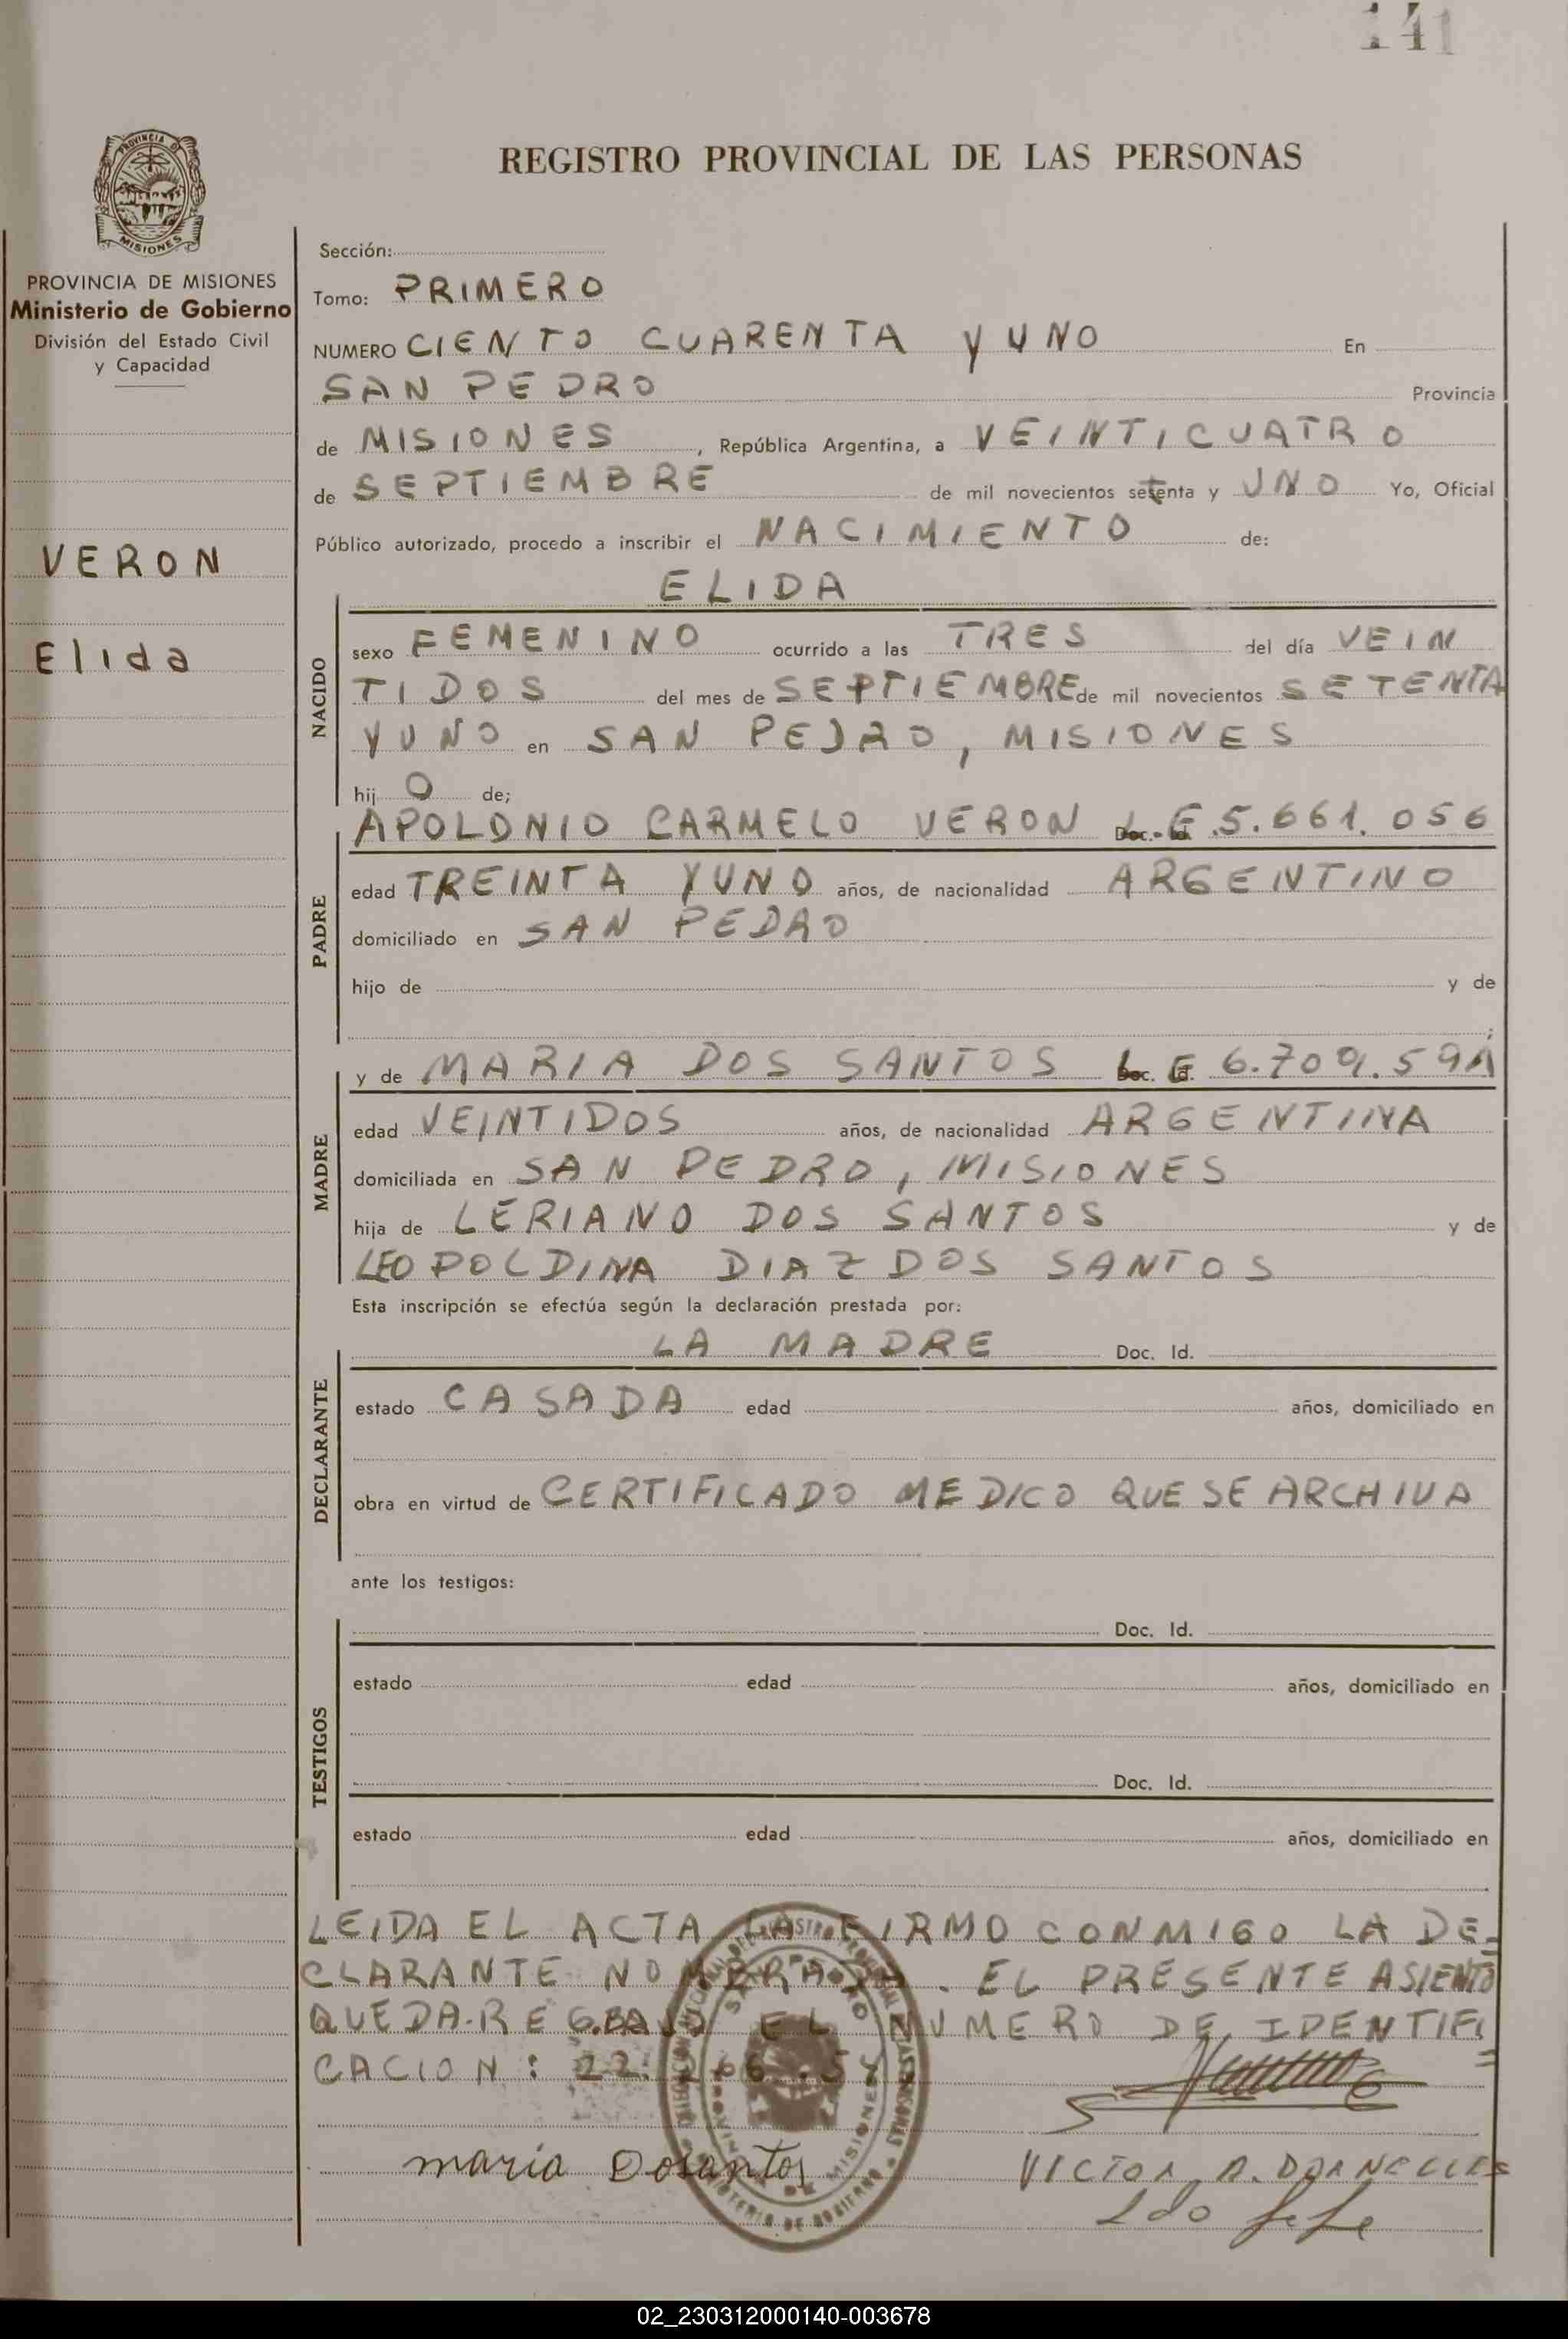 141
PROVINCIA DE
MISIONES
REGISTRO PROVINCIAL DE LAS PERSONAS
PROVINCIA DE MISIONES
Ministerio de Gobierno
División del Estado Civil
y Capacidad
VERON
Elida
Sección:
Tomo: PRIMERO
NUMERO CIENTO CUARENTA Y UNO En
SAN PEDRO Provincia
de MISIONES, República Argentina, a VEINTICUATRO
de SEPTIEMBRE de mil novecientos setenta y UNO Yo, Oficial
Público autorizado, procedo a inscribir el NACIMIENTO de:
ELIDA
NACIDO
sexo FEMENINO ocurrido a las TRES del día VEIN
TIDOS del mes de SEPTIEMBRE de mil novecientos SETENTA
Y UNO en SAN PEDRO, MISIONES
hij O de;
PADRE
APOLONIO CARMELO VERON L.E 5.661.056
edad TREINTA Y UNO años, de nacionalidad ARGENTINO
domiciliado en SAN PEDRO
hijo de y de
;
MADRE
y de MARIA DOS SANTOS 6.709.591
edad VEINTIDOS años, de nacionalidad ARGENTINA
domiciliada en SAN PEDRO, MISIONES
hija de LERIANO DOS SANTOS y de
LEOPOLDINA DIAZ DOS SANTOS
Esta inscripción se efectúa según la declaración prestada por:
DECLARANTE
LA MADRE Doc. Id.
estado CASADA edad años, domiciliado en
obra en virtud de CERTIFICADO MEDICO QUE SE ARCHIVA
ante los testigos:
TESTIGOS
Doc. Id.
estado edad años, domiciliado en
Doc. Id.
estado edad años, domiciliado en
LEIDA EL ACTA LA FIRMO CONMIGO LA DE=
CLARANTE NOMBRADA. EL PRESENTE ASIENTO
QUEDA REG.BAJO EL NUMERO DE IDENTIFI
CACION: 22.
=
SAN PEDRO
PROVINCIA DE MISIONES
MINISTERIO DE GOBIERNO
maria Dosantos
VICTOR A. DORNELLES
2do Jefe
02_230312000140-003678